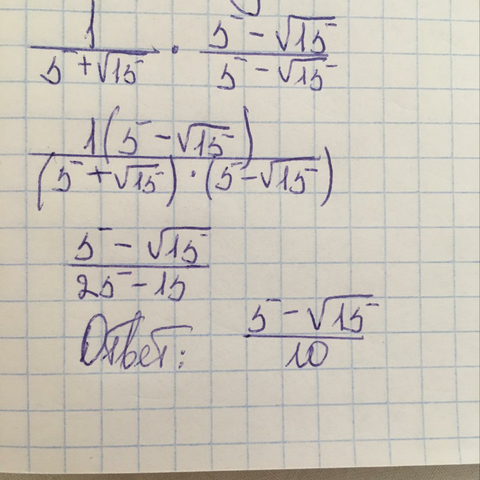 1/(5+√15) · (5-√15)/(5-√15)
1(5-√15)/((5+√15)·(5-√15))
(5-√15)/(25-15)
Ответ: (5-√15)/10